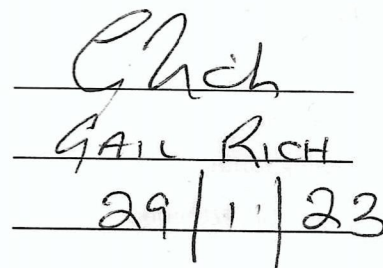 GRich
GAIL RICH
29/11/23